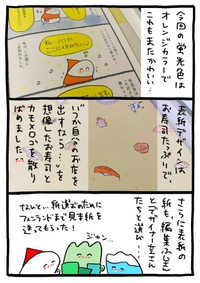 今回の蛍光色は
オレンジカラーで
これもまたかわいい…
表紙デザインは
お寿司たっぷりで、
いつか自分のお店を
出すなら…を
想像したお寿司と
カモメロゴを散り
ばめました
さらに表紙の
紙も、編集さん
とデザイナーさん
たちと選び…
なんと…紙選びのために
フィンランドまで見本紙を
送ってもらった!